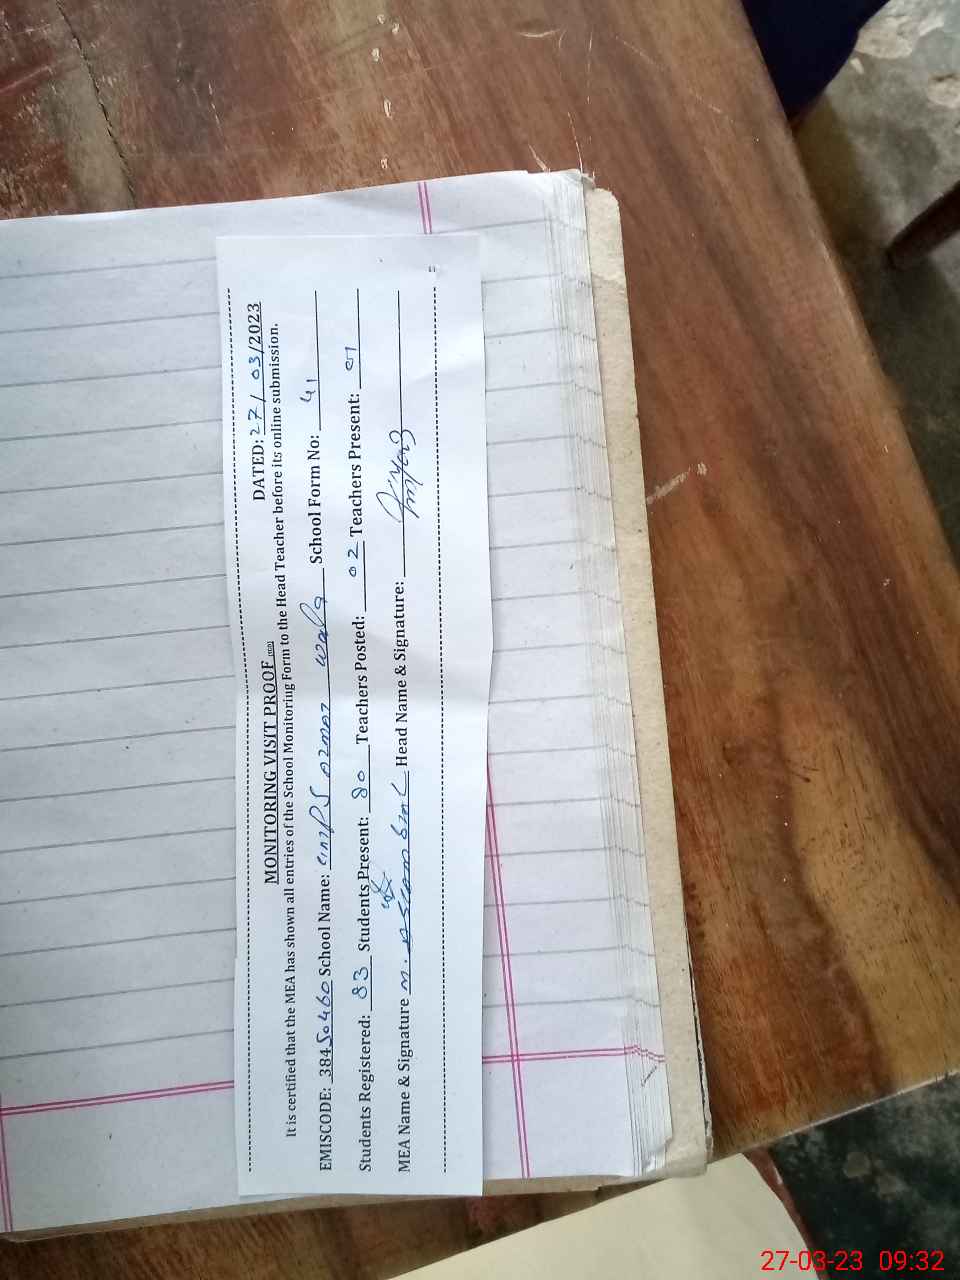 MONITORING VISIT PROOF DATED: 27/03/2023
It is certified that the MEA has shown all entries of the School Monitoring Form to the Head Teacher before its online submission.
EMISCODE: 38450460 School Name: School Form No: 41
Students Registered: 83 Students Present: 80 Teachers Posted: 02 Teachers Present: 01
MEA Name & Signature M. Head Name & Signature:
27-03-23 09:32